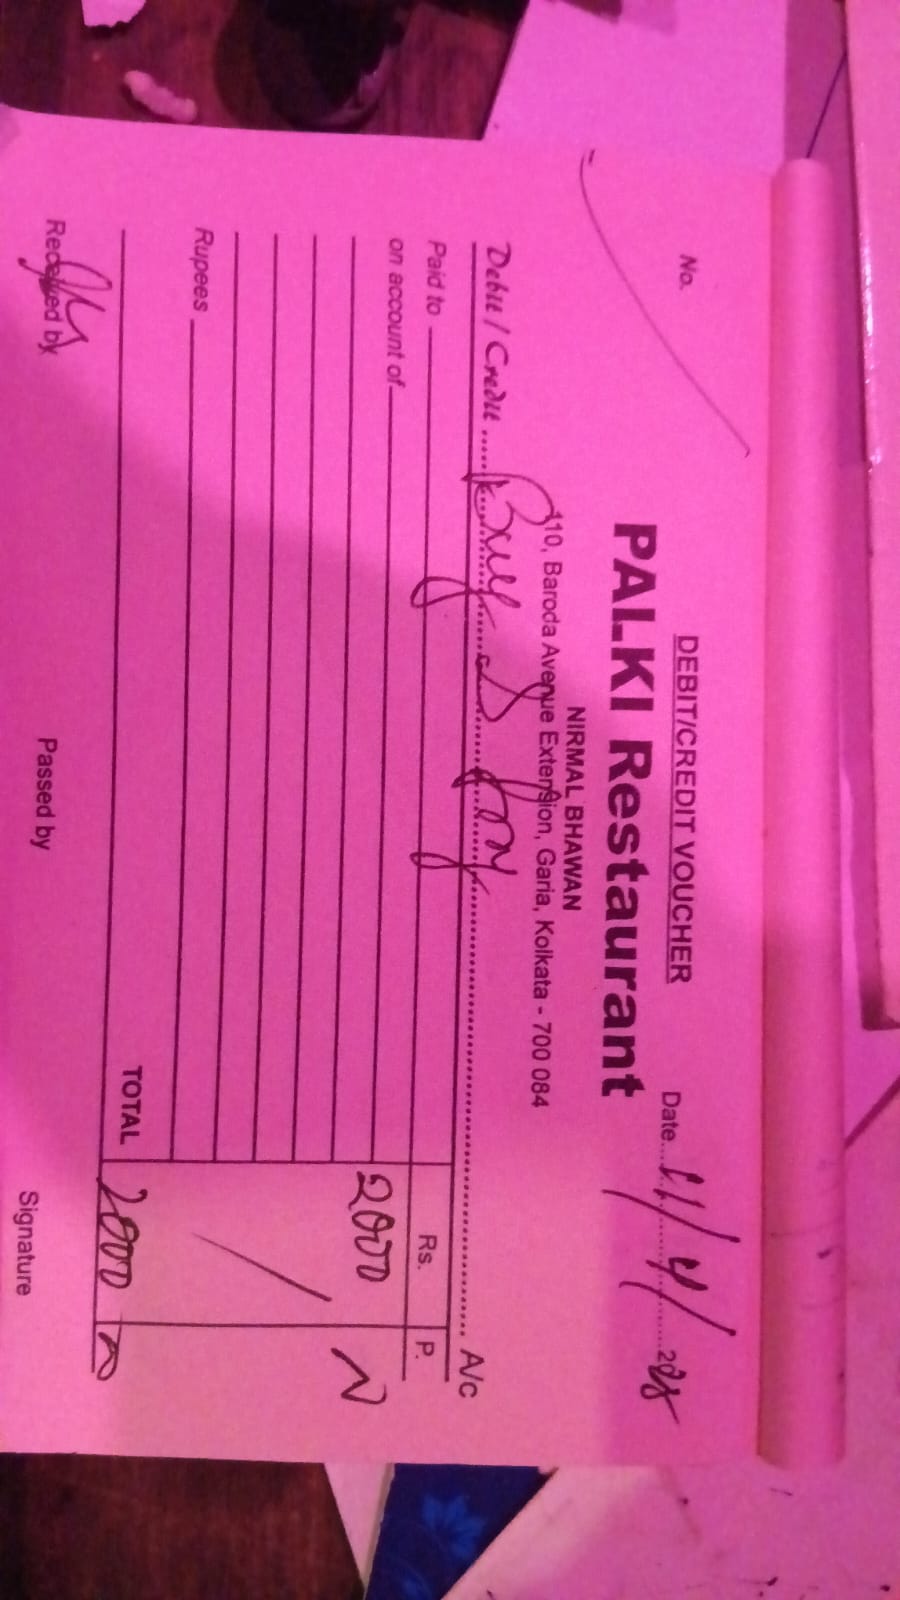 DEBIT/CREDIT VOUCHER
No. Date
PALKI Restaurant
NIRMAL BHAWAN
110, Baroda Avenue Extension, Garia, Kolkata - 700 084
Debit / Credit A/c
Paid to Rs. P.
on account of
2000
Rupees
TOTAL 2000
Received by Passed by Signature